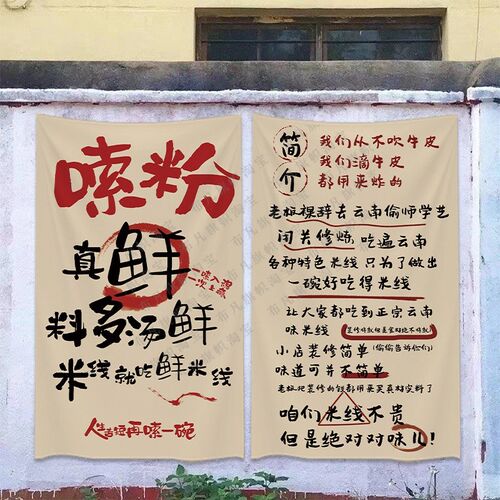 嗦粉
真鲜
一嗦入魂
一次上瘾
料多汤鲜
米线就吃鲜米线
人生苦短再嗦一碗
简介
我们从不吹牛皮
我们滴牛皮
都用来炸的
老板裸辞去云南偷师学艺
闭关修炼吃遍云南
各种特色米线只为了做出
一碗好吃得米线
让大家都吃到正宗云南
味米线
小店装修简单(偷偷告诉你们)
味道可并不简单
老板把装修的钱都用来买真材实料了
咱们米线不贵
但是绝对对味儿!